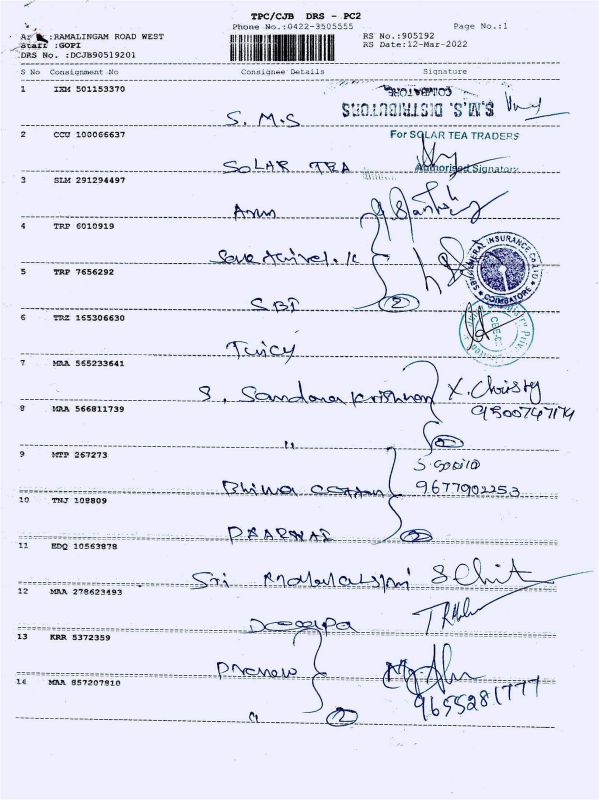 TPC/CJB DRS - PC2
Phone No.:0422-3505555 Page No.:1
:RAMALINGAM ROAD WEST RS No.:905192
Staff :GOPI RS Date:12-Mar-2022
DRS No. :DCJB90519201
S No Consignment No Consignee Details Signature
1 IXM 501153370
S.M.S. DISTRIBUTORS
COIMBATORE
S. M.S
2 CCU 100066637 For SOLAR TEA TRADERS
SOLAR TEA Authorised Signatory
3 SLM 291294497
Arun
4 TRP 6010919
5 TRP 7656292
SBI GENERAL INSURANCE CO LTD
COIMBATORE
SBI 2
6 TRZ 165306630
7 MAA 565233641
S. Sandana Krishnan X. Christy
8 MAA 566811739 9500747174
" 2
9 MTP 267273
9677902253
10 TNJ 108809
2
11 EDQ 10563878
Sri Mahalaxmi
12 MAA 278623493
Deepa
13 KRR 5372359
14 MAA 857207810
9655281777
" 2